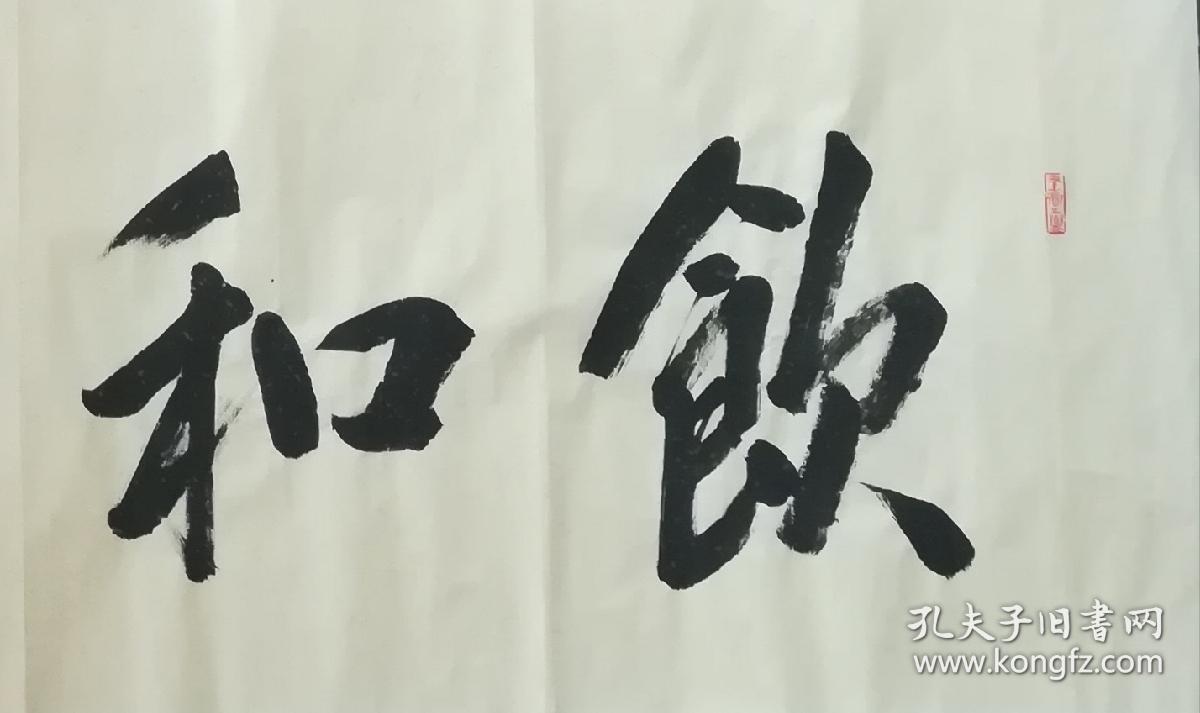 飲和
孔夫子旧書网
www.kongfz.com